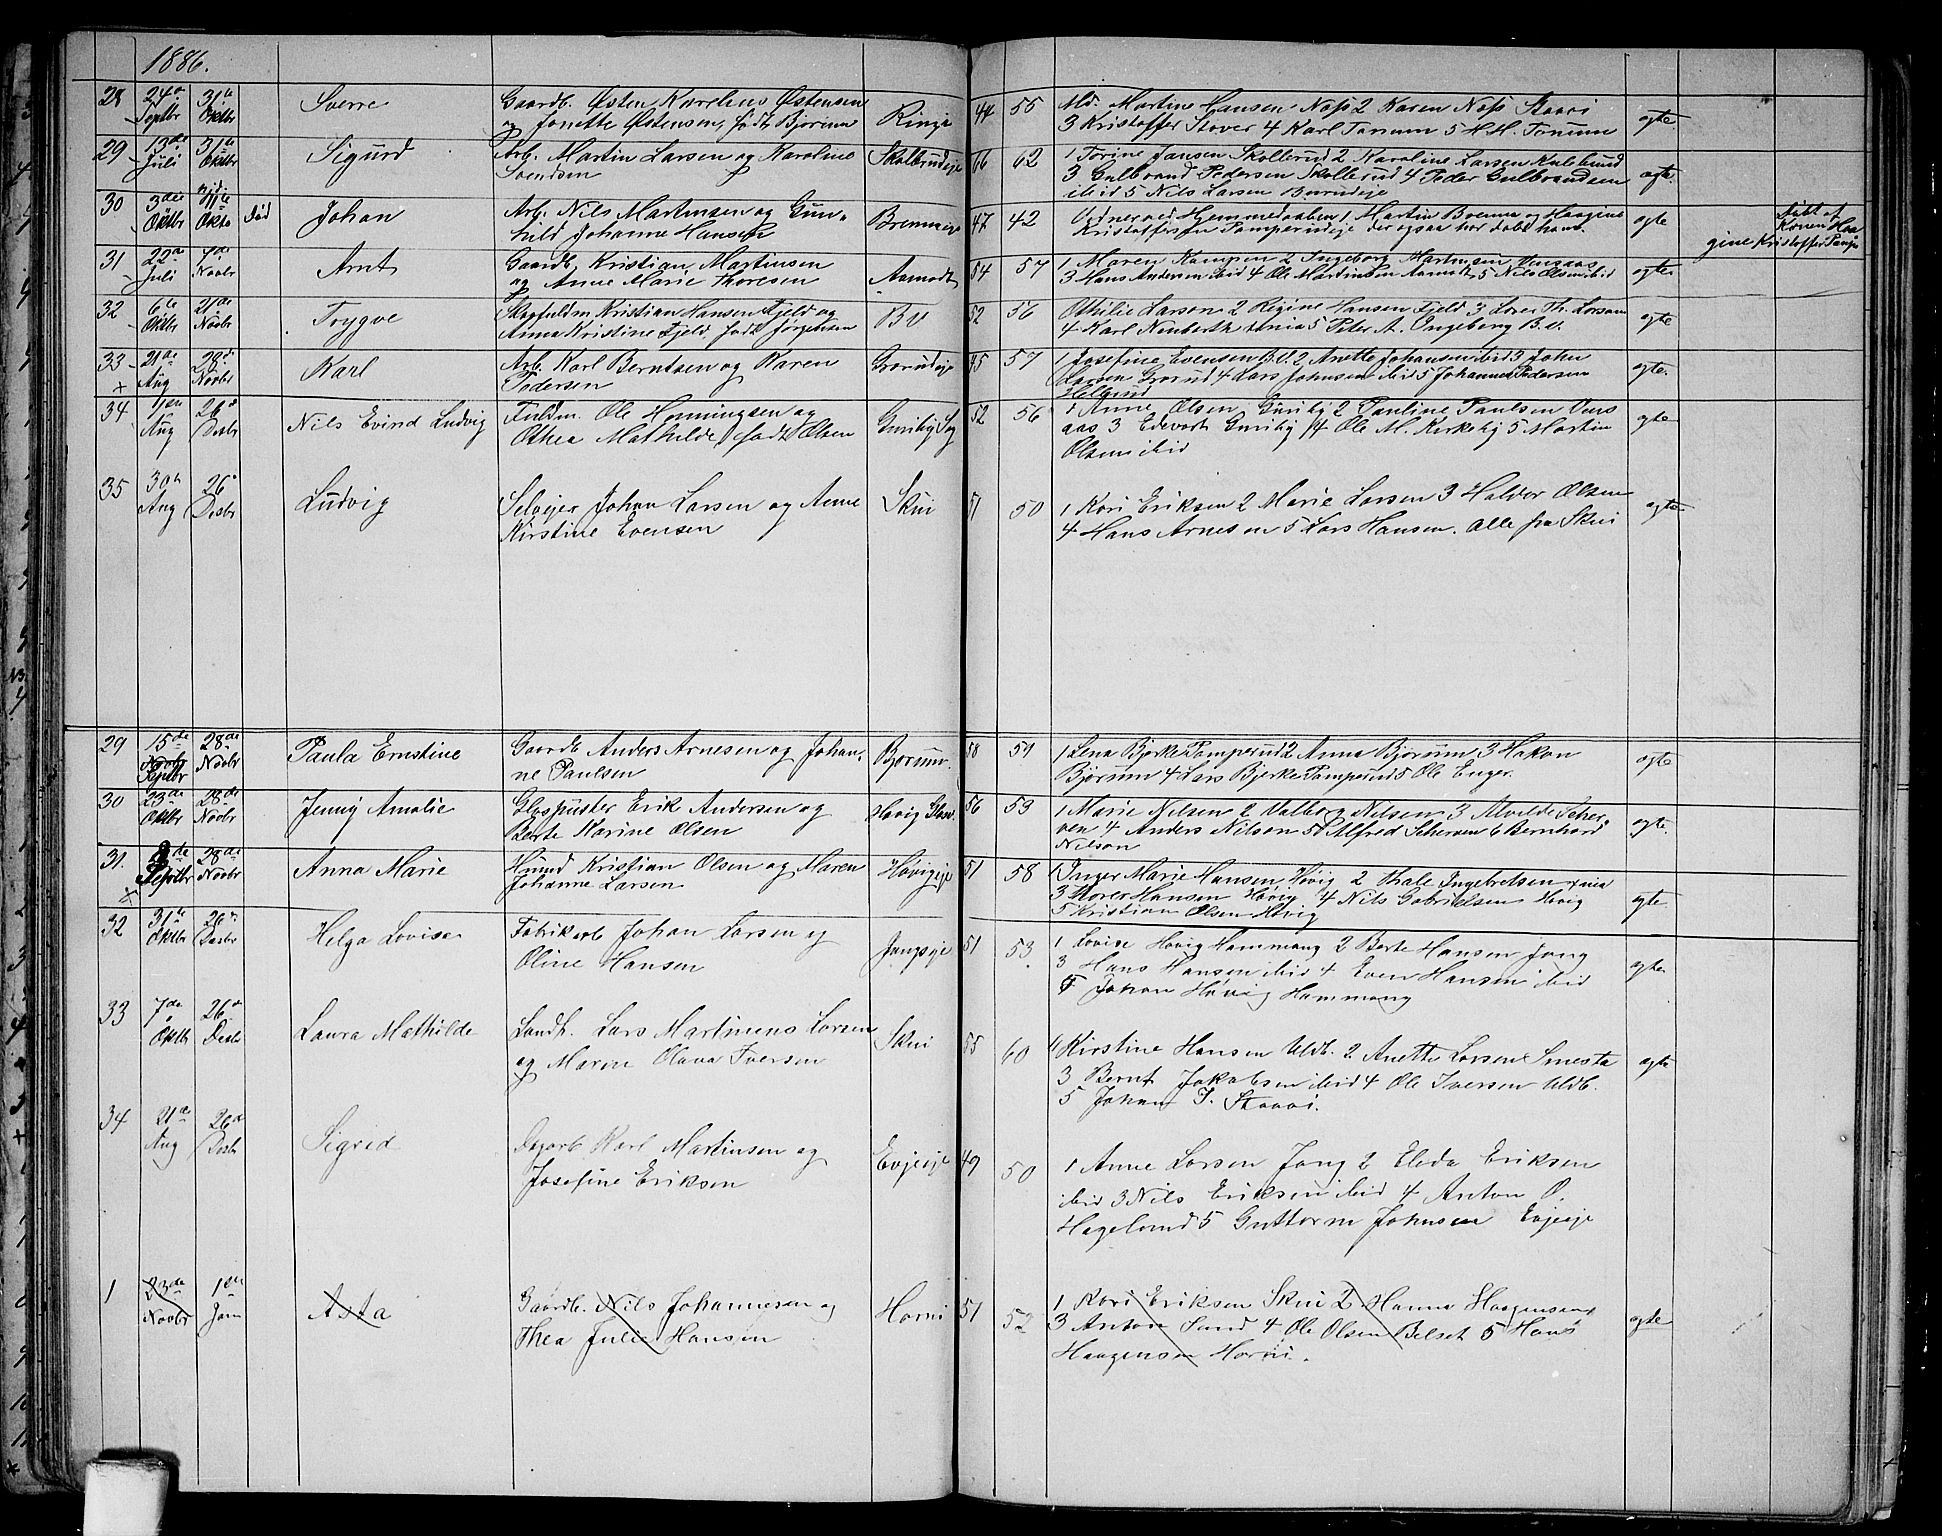 1886.
28 24de Septbr 31te Oktbr Sverre Gaardb. Østen Karelius Østensen Ringi 44 55 Md. Martine Hansen Næs 2 Karen Næs Staavi ægte.
og Jonette Østensen, født Bjørum 3 Kristoffer Stover 4 Karl Tanum 5 H. H. Tanum
29 13de Juli 31te Oktbr Sigurd Arb. Martin Larsen og Karoline Skollerudeje 66 62 1 Torine Jansen Skollerud 2 Karoline Larsen ægte.
Svendsen 3 Gulbrand Pedersen Skollerud 4 Peder Gulbrandsen
ibid 5 Nils Larsen
30 3die Oktbr 11te Okto Død Johan Arb. Nils Martinsen og Gun- 47 42 Hjemmedaaben 1 Martin Brenna og Haagine ægte Døbt af
hild Johanne Hansen Kristoffersen Pamperudeje der ogsaa har døbt ham. Konen Haa
gine Kristoffer Pamp
31 22de Juli 7de Novbr Arnt Gaardb. Kristian Martinsen Aamodt 54 57 1 Maren Kampen 2 Ingeborg Martinsen ægte
og Anne Marie Thoresen 3 Hans Andersen ibid 4 Ole Martinsen Aamodt 5 Nils Olsen ibid
32 6te Oktbr 21de Novbr Trygve Skogfuldm Kristian Hansen Fjeld og B V 52 56 Othilie Larsen 2 Regine Hansen Fjeld 3 Lærer Th. Larsen ægte
Anna Kristine Fjeld født Jørgensen 4 Karl 5 Peter A. Engeborg B.v.
33 21de Aug 28de Novbr Karl Arb. Karl Berntsen og Karen Grorudeje 45 57 1 Josefine Evensen B.V. 2 Anette Johansen ibid 3 John ægte.
Pedersen Larsen Grorud 4 Lars Johnsen ibid 5 Johannes Pedersen
Helgerud
34 11te Aug 26de Desbr Nils Evind Ludvig Fuldm. Ole Henningsen og 52 56 1 Anne Olsen 2 Pauline Paulsen ægte
Othea Mathilde født Olsen 3 Edvart 4 Ole M. Kirkeby 5 Martin
Olsen ibid
35 30te Aug 26de Desbr Ludvig Selvejer Johan Larsen og Anne Skui 51 50 1 Kari Eriksen 2 Marie Larsen 3 Haldor Olsen ægte
Kirstine Evensen 4 Hans Arnesen 5 Lars Hansen. Alle fra Skui
29 15de Septbr 28de Novbr Paula Ernstine Gaardb Anders Arnesen og Johan- Bjørum. 58 51 1 Lena Bjerke Pamperud 2 Anna Bjørum 3 Hakon ægte
ne Paulsen Bjørum 4 Lars Bjerke Pamperud 5 Ole Enger.
30 23de Oktbr 28de Novbr Jenny Amalie Glaspuster Erik Andersen og Høvig Glasv. 56 53 1 Marie Nilsen 2 Valborg Nilsen 3 Alvilde Scher- ægte.
Berte Karine Olsen ven 4 Anders Nilsen 5 Alfred Scherven 6 Bernhard
Nilson
31. Septbr 28de Novbr Anna Marie Hmd Kristian Olsen og Maren Høvigeje 51 58 Inger Marie Hansen Høvig 2 Thale Ingebretsen ægte
Johanne Larsen 3 Hansen Høvig 4 Nils Gabrielsen Høvig
5 Kristian Olsen Høvig
32 31te Oktbr 26de Desbr Helga Lovise Fabrikarb Johan Larsen og Jongseje 51 53 1 Lovise Høvig Hammang 2 Berte Hansen Jong ægte
Oline Hansen 3 Hans Hansen ibid 4 Even Hansen ibid
5 Johan Høvig Hammang
33 7de Oktbr 26de Desbr Laura Mathilde Landh. Lars Martinius Larsen Skui 55 60 1 Kirstine Hansen Uldb. 2 Anette Larsen Smesta ægte
og Maren Olava Iversen 3 Bernt Jakobsen ibid 4 Ole Iversen Uldb.
5 Johan I. Staavi.
34 21de Aug 26de Desbr Sigrid Dagarb Karl Martinsen og Evjeeje 49 50 1 Anne Larsen Jong 2 Eleda Eriksen
Josefine Eriksen ibid 3 Nils Eriksen ibid 4 Anton O.
Hagelund 5 Guttorm Johnsen Evjeeje
1 23de Novbr 1ste Jan Asta Gaardb. Nils Johannesen og Horni 51 52 1 Kari Eriksen Skui 2 Hanna Haagensen ægte
Thea Julie Hansen 3 Anton Sand 4 Ole Olsen Belset 5 Hans
Haagensen Horni.